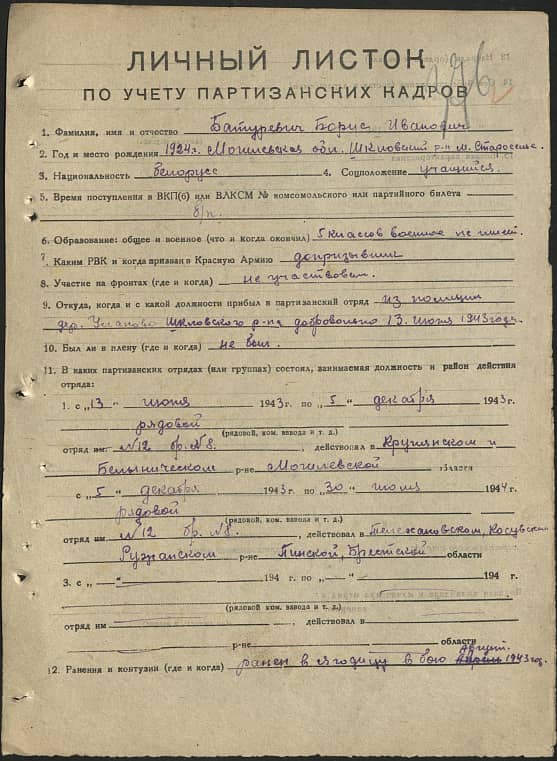 ЛИЧНЫЙ ЛИСТОК
ПО УЧЕТУ ПАРТИЗАНСКИХ КАДРОВ
1. Фамилия, имя и отчество Батуревич Борис Иванович
2. Год и место рождения 1924 г. Могилевская обл. Шкловский р-н м. Староселье.
3. Национальность белорусс 4. Соцположение учащийся.
5. Время поступления в ВКП(б) или ВЛКСМ № комсомольского или партийного билета
б/п.
6. Образование: общее и военное (что и когда окончил) 5 классов военное не имеет.
7. Каким РВК и когда призван в Красную Армию допризывник
8. Участие на фронтах (где и когда) не участвовал.
9. Откуда, когда и с какой должности прибыл в партизанский отряд из полиции
дер. Шкловского р-на добровольно 13. июня 1943 года.
10. Был ли в плену (где и когда) не был.
11. В каких партизанских отрядах (или группах) состоял, занимаемая должность и район действия
отряда:
1. с „13" июня 1943 г. по „5" декабря 1943 г.
рядовой
(рядовой, ком. взвода и т. д.)
отряд им. №12 бр. №8. , действовал в Круглянском и
Белыническом р-не Могилевской области
с „5" декабря 1943 г. по „30" июня 1944 г.
рядовой
(рядовой, ком. взвода и т. д.)
отряд им. №12 бр. №8. , действовал в Телехановском, Косувском
Ружанском р-не Пинской, Брестской области
3. с „—" 194 г. по „—" 194 г.
(рядовой, ком. взвода и т. д.)
отряд им , действовал в
р-не области
август.
12. Ранения и контузии (где и когда) ранен в ягодицу в бою 1943 год.